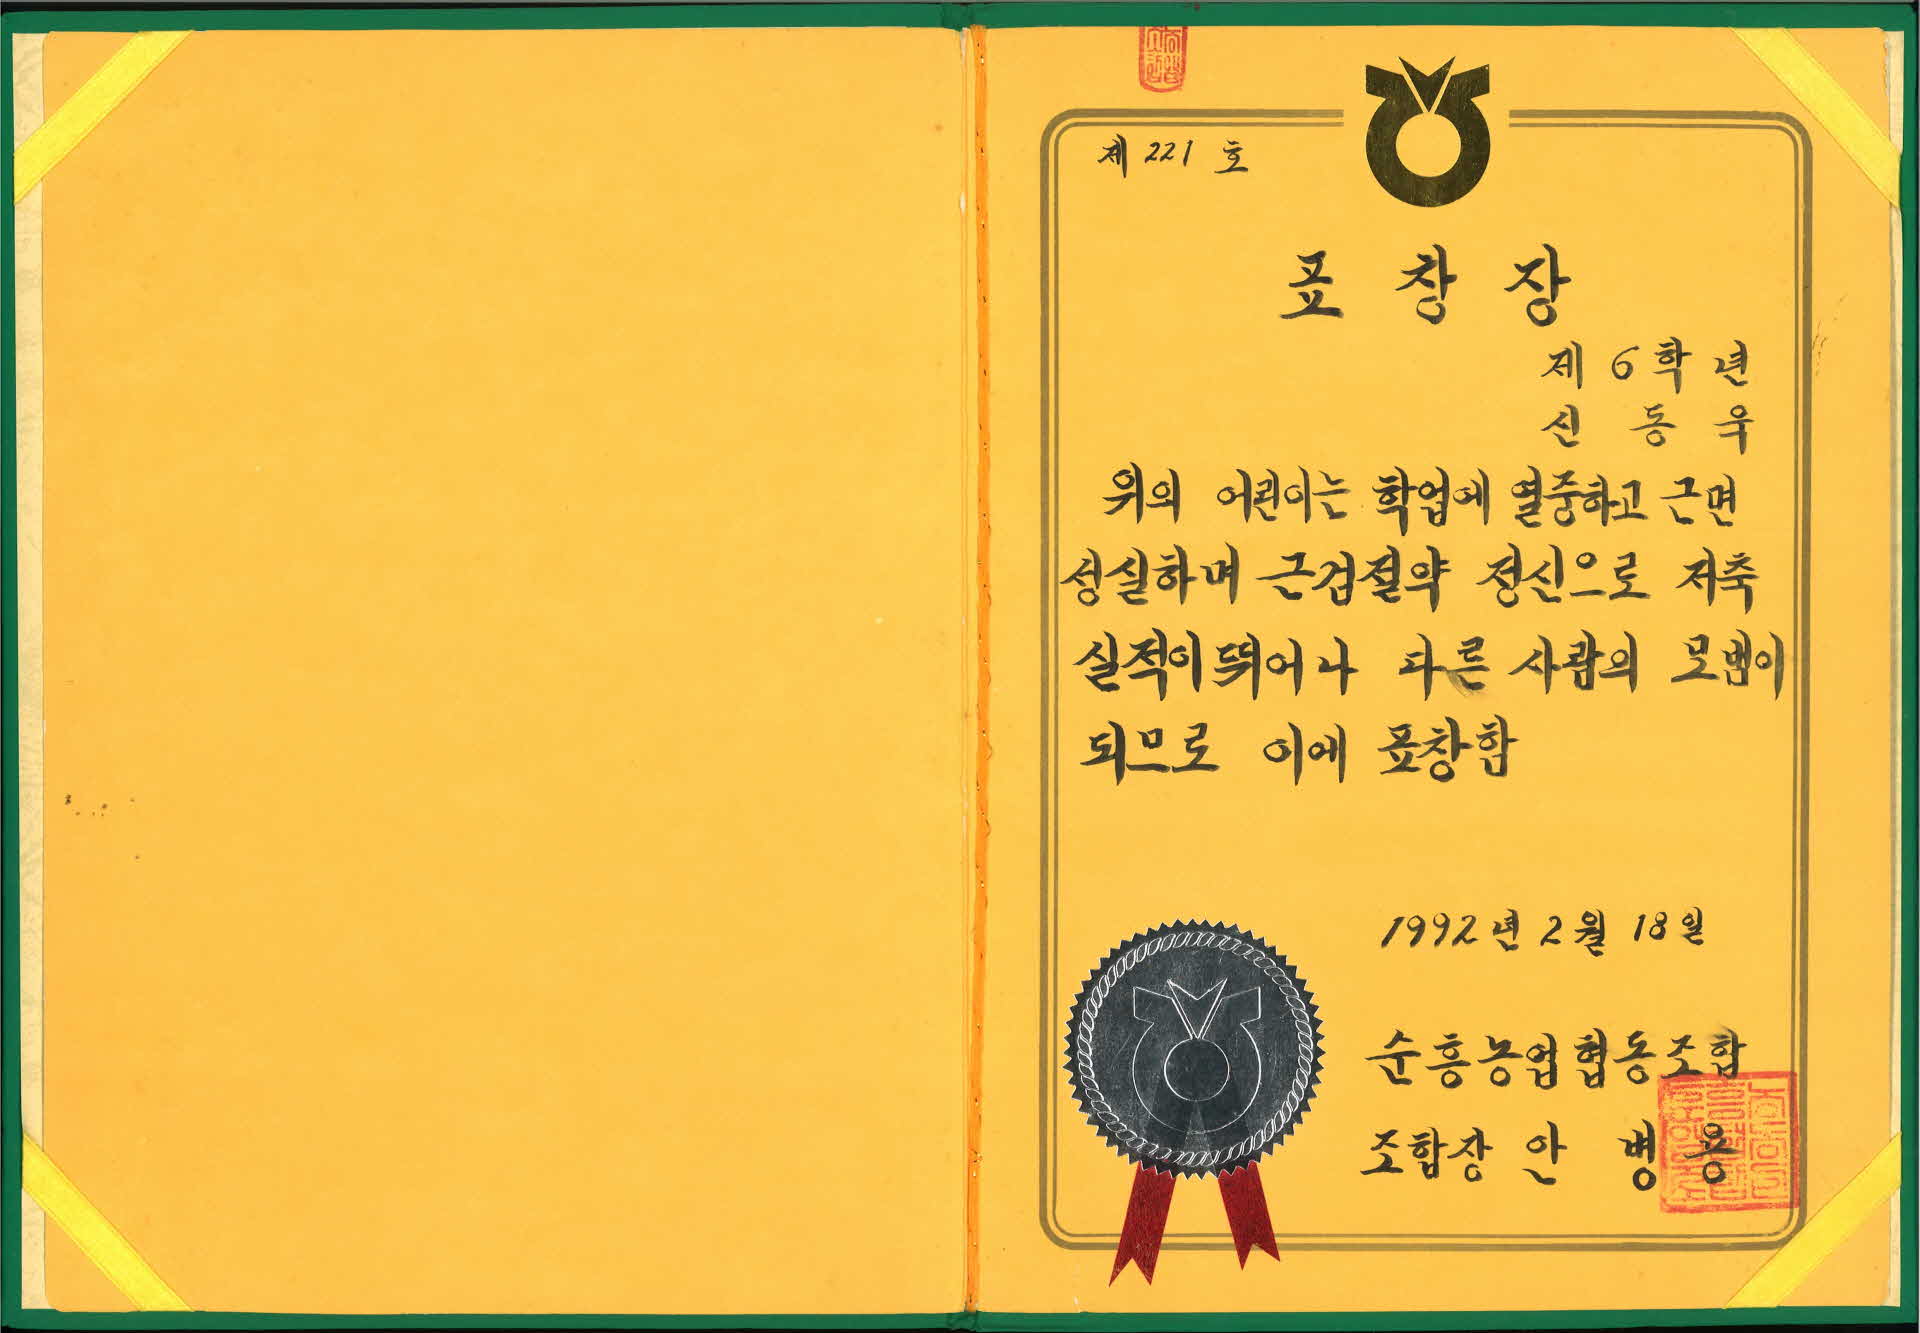 제 221 호
표 창 장
제 6학년
신 동 욱
위의 어린이는 학업에 열중하고 근면
성실하며 근검절약 정신으로 저축
실적이 뛰어나 다른 사람의 모범이
되므로 이에 표창함
1992년 2월 18일
순흥농업협동조합
조합장 안 병 용